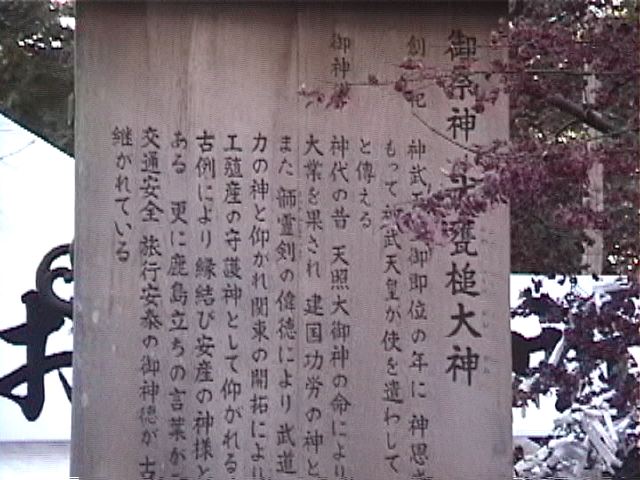 御祭神 武甕槌大神
創祀 神武天皇御即位の年に 神恩
もって神武天皇が使を遣わして
と傳える
御神 神代の昔 天照大御神の命により
大業を果され 建国功労の神と
また 韴霊剣の偉徳により 武道
力の神と仰がれ関東の開拓により
工殖産の守護神として仰がれる
古例により 縁結び安産の神様と
ある 更に鹿島立ちの言葉が
交通安全 旅行安泰の御神徳が 古
継がれている